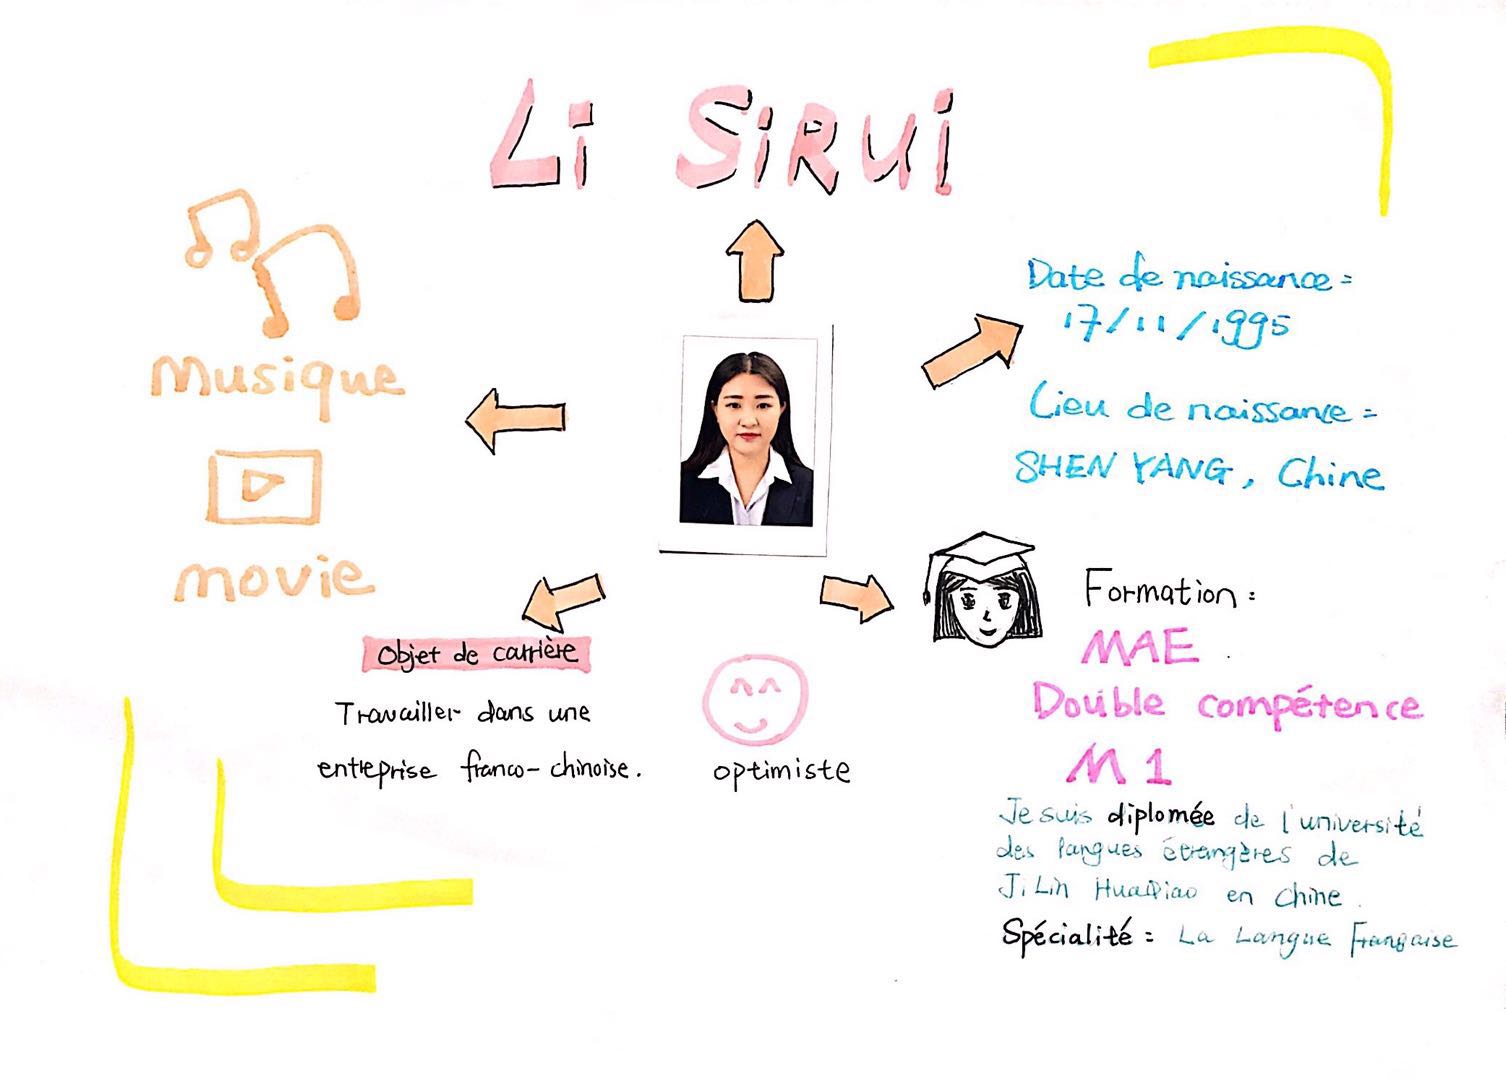 Li SiRui
Musique
movie
Date de naissance =
17/11/1995
Lieu de naissance =
SHEN YANG, Chine
Objet de carrière
Travailler dans une
entreprise franco-chinoise.
optimiste
Formation :
MAE
Double compétence
M 1
Je suis diplomée de l'université
des langues étrangères de
Ji Lin HuaQiao en chine.
Spécialité : La Langue Française